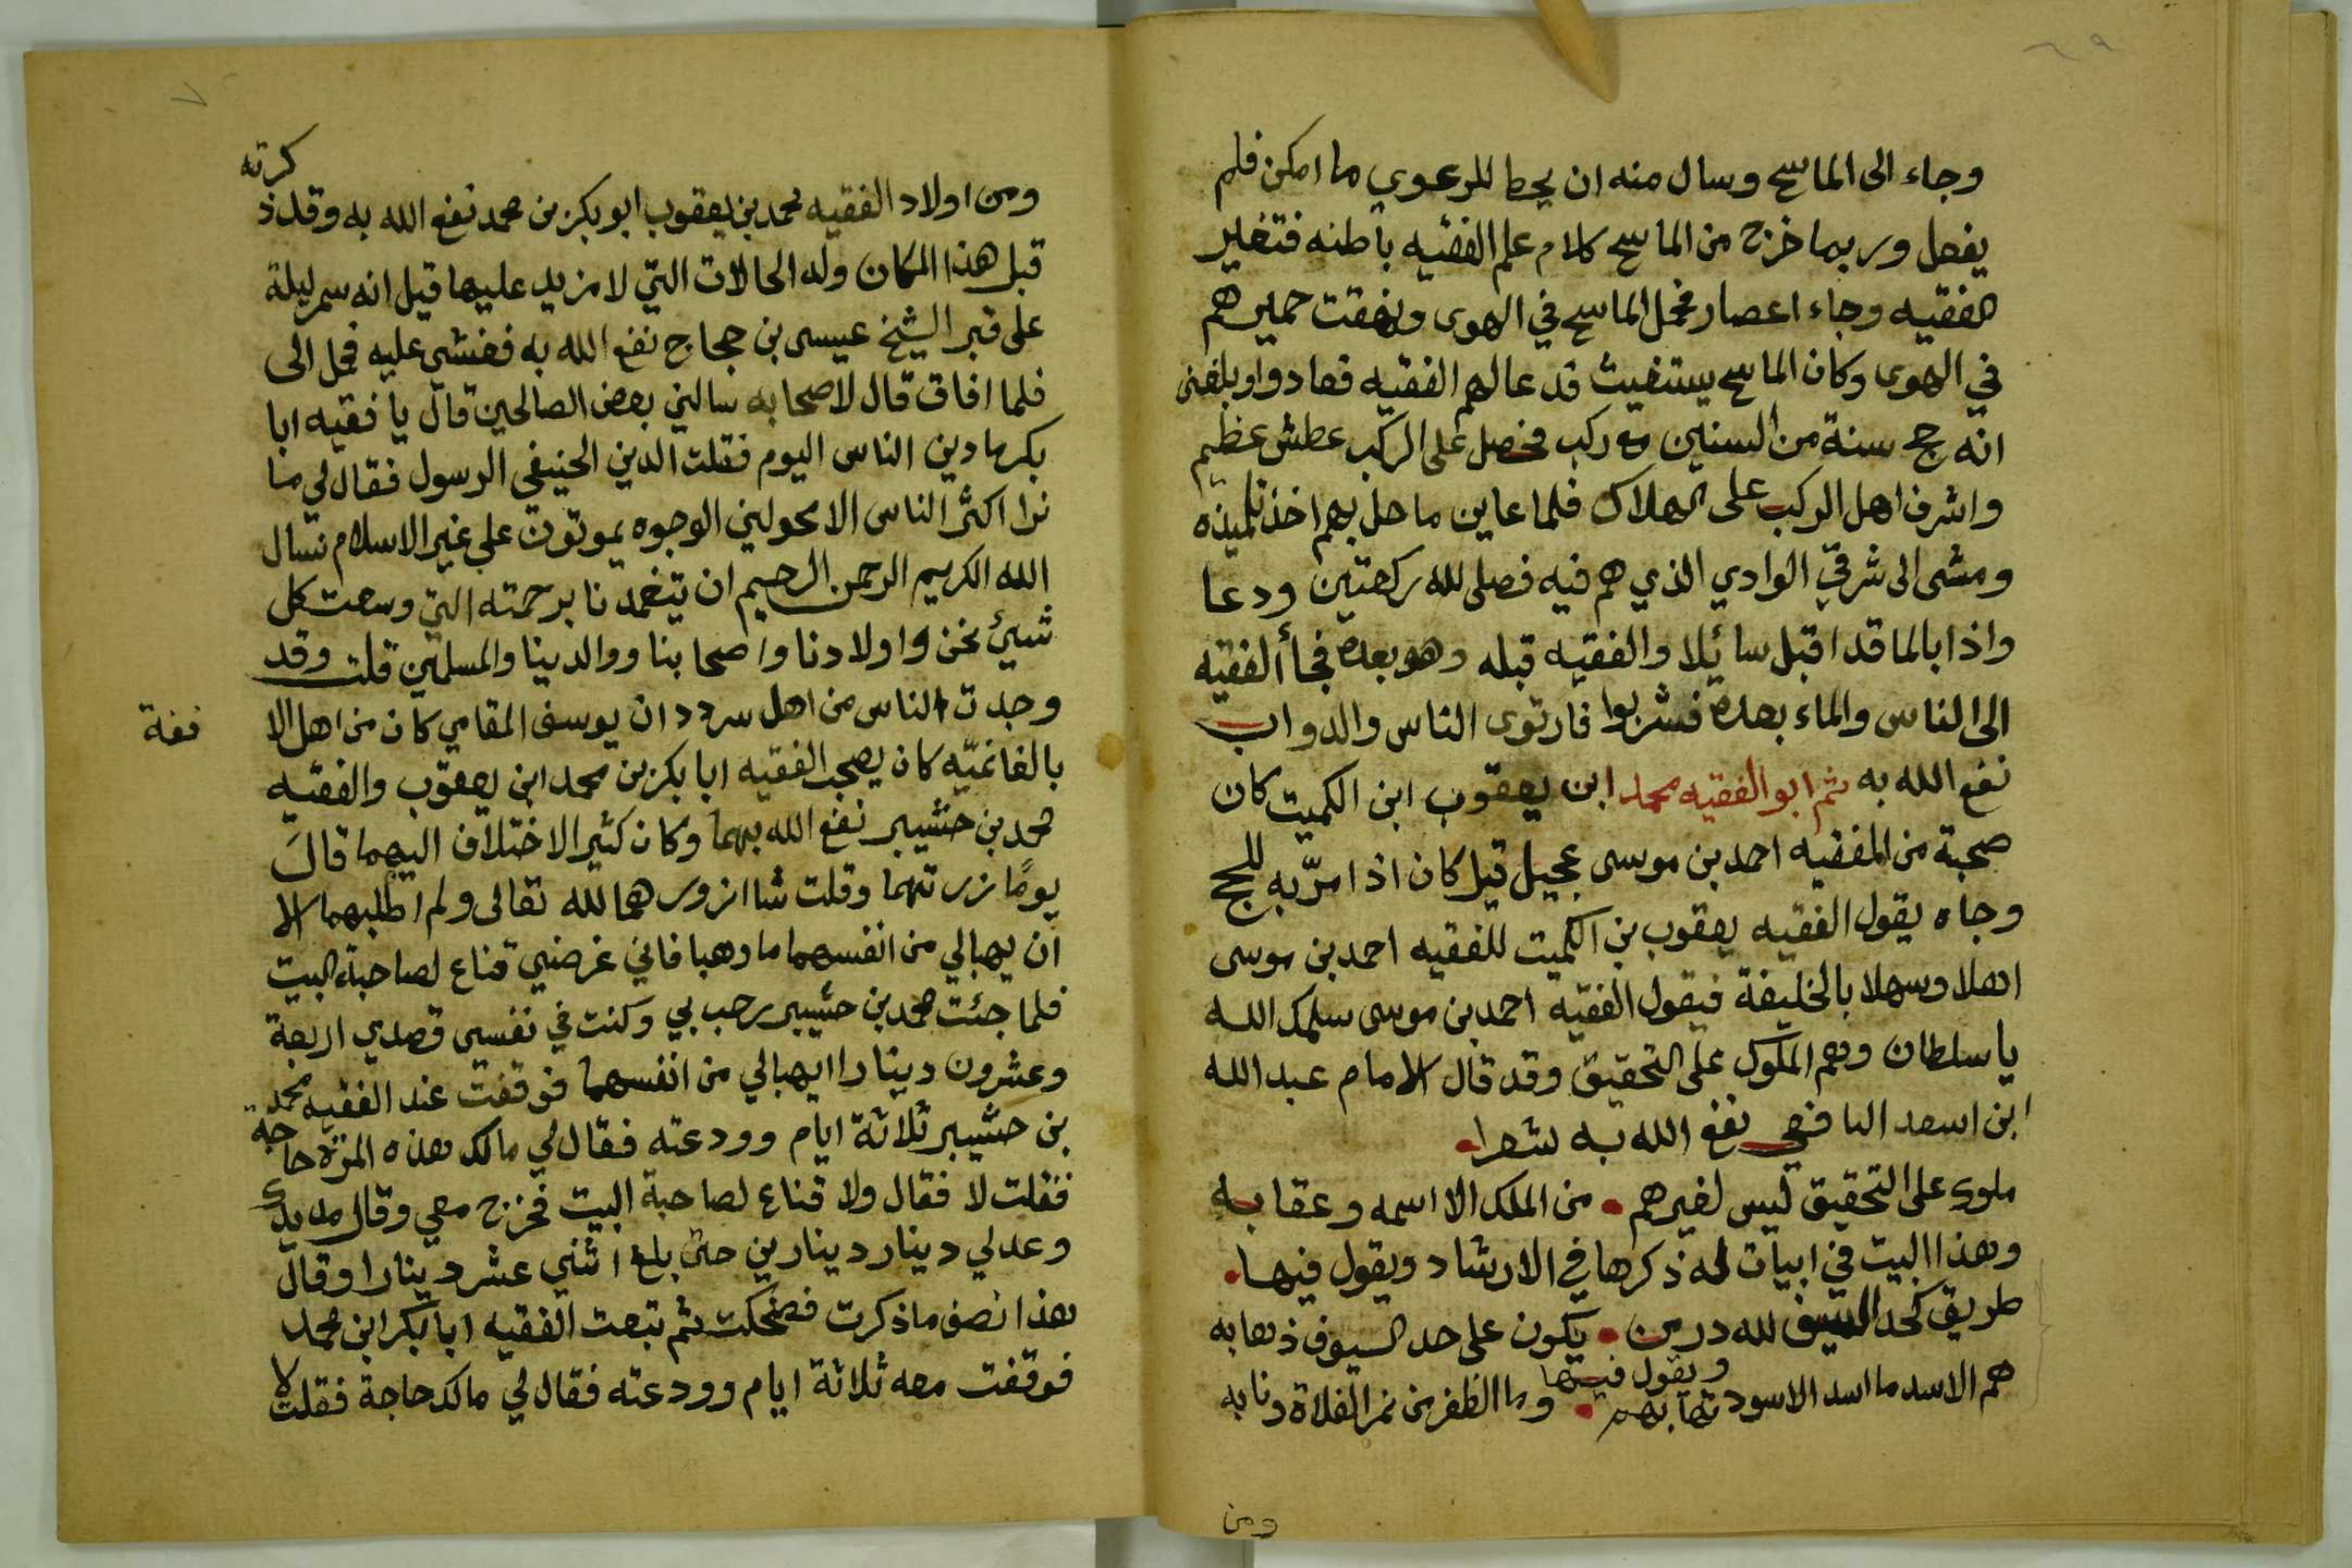 ٦٩
وجاء الى الماسح وسال منه ان يحط للرعوي ما امكن فلم
يفعل وربما خرج من الماسح كلام علم الفقيه باطنه فتغير
الفقيه وجاء اعصار فحمل الماسح في الهوى ونهقت حميرهم
في الهوى وكان الماسح يستغيث قدعا لهم الفقيه فعادوا وبلغنى
انه حج سنة من السنين مع ركب فحصل على الركب عطش عظيم
واشرف اهل الركب على الهلاك فلما عاين ما حل بهم اخذ تلميذه
ومشى الى شرقي الوادي الذي هم فيه فصلى لله ركعتين ودعا
واذا بالما قد اقبل سائلا والفقيه قبله وهو بعده فجأ الفقيه
الى الناس والماء بعده فشربوا فارتوى الناس والدواب
نفع الله به ثم ابو الفقيه محمد ابن يعقوب ابن الكميت كان
صحبة من الفقيه احمد بن موسى عجيل قيل كان اذا مرّ به للحج
وجاه يقول الفقيه يعقوب بن الكميت للفقيه احمد بن موسى
اهلا وسهلا بالخليفة فيقول الفقيه احمد بن موسى سلمك الله
يا سلطان وهم الملوك على التحقيق وقد قال الامام عبد الله
ابن اسعد اليافعي نفع الله به شعرا
ملوك على التحقيق ليس لغيرهم من الملك الا اسمه وعقابه
وهذا البيت في ابيات له ذكرها في الارشاد ويقول فيها
طريق كحد السيف لله در من يكون على حد السيوف ذهابه
ويقول فيها
هم الاسد ما اسد الاسود تهابهم وما الظفر من نمر الفلاة ونابه
ومن
٧٠
ومن اولاد الفقيه محمد بن يعقوب ابو بكر بن محمد نفع الله به وقد ذكرته
قبل هذا المكان وله الحالات التي لا مزيد عليها قيل انه سمر ليلة
على قبر الشيخ عيسى بن حجاج نفع الله به فغشى عليه فحمل الى
فلما افاق قال لاصحابه سالني بعض الصالحين قال يا فقيه ابا
بكر ما دين الناس اليوم فقلت الدين الحنيفي الرسول فقال لي ما
نرا اكثر الناس الا محولين الوجوه يموتون على غير الاسلام نسال
الله الكريم الرحمن الرحيم ان يتغمدنا برحمته التي وسعت كل
شيئ نحن واولادنا واصحابنا ووالدينا والمسلمين قلت وقد
وجدت الناس من اهل سردد ان يوسف المقامي كان من اهل الا
فغة
بالغانميّه كان يصحب الفقيه ابا بكر بن محمد ابن يعقوب والفقيه
محمد بن حشيبر نفع الله بهما وكان كثير الاختلاف اليهما قال
يومًا زرتهما وقلت شا ازورهما لله تعالى ولم اطلبهما الا
ان يهبا لي من انفسهما ما وهبا فاني غرضي قناع لصاحبة البيت
فلما جئت محمد بن حشيبر رحب بي وكنت في نفسي قصدي اربعة
وعشرون دينارا ايهبا لي من انفسهما فوقفت عند الفقيه محمد
بن حشيبر ثلاثة ايام وودعته فقال لي مالك هذه المرة حاجة
فقلت لا فقال ولا قناع لصاحبة البيت فخرج معي وقال مد يدك
وعد لي دينار دينارين حتى بلغ اثني عشر دينارا وقال
هذا نصف ما ذكرت فضحكت ثم تبعت الفقيه ابا بكر ابن محمد
فوقفت معه ثلاثة ايام وودعته فقال لي مالك حاجة فقلت لا